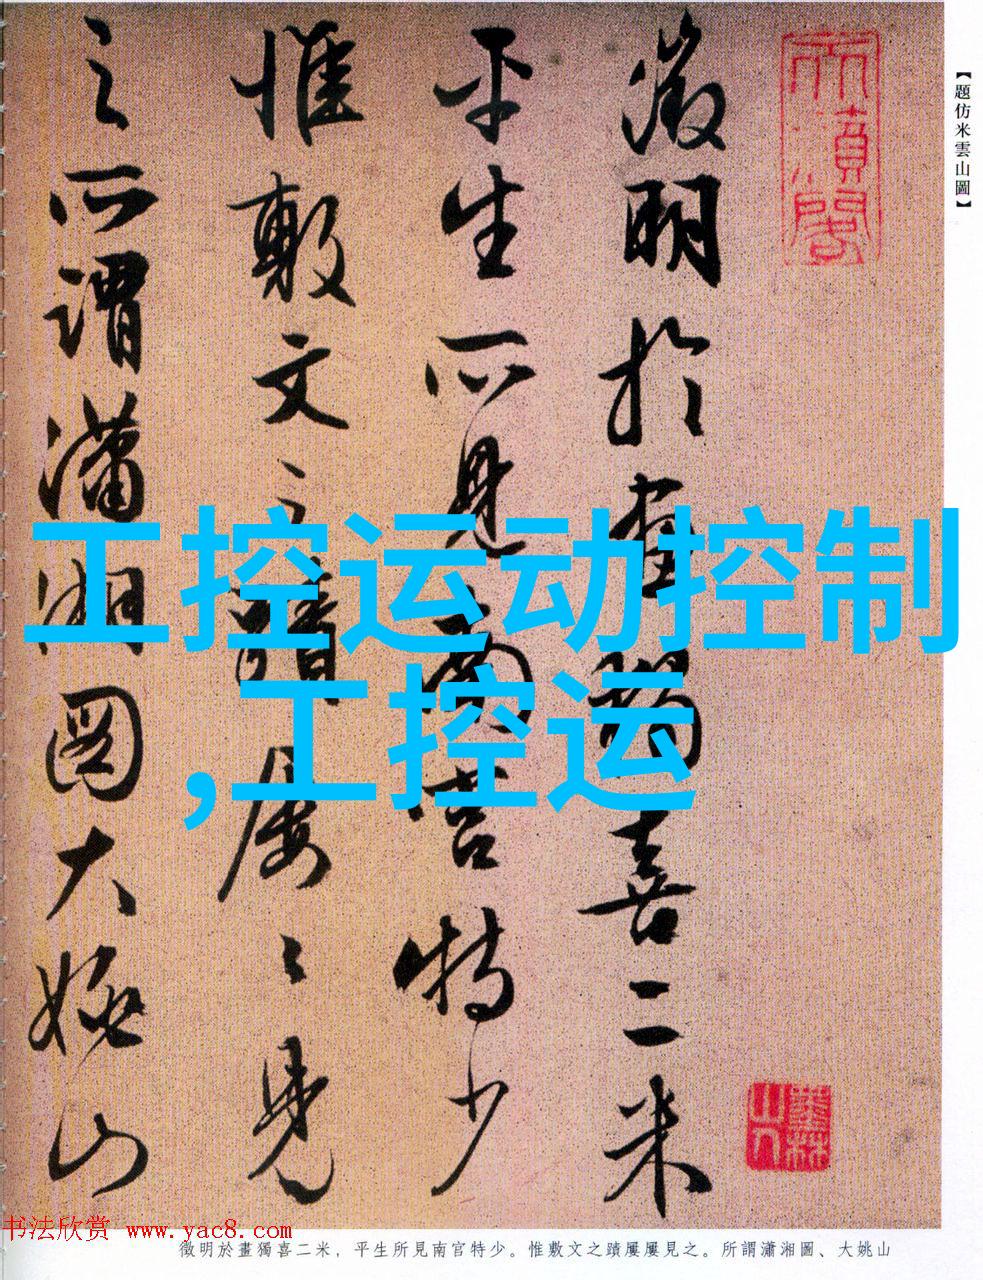 【題仿米雲山圖】
徵明於畫獨喜二米
平生所見南宫特少
惟敷文之蹟屢〻見
之所謂瀟湘圖大姚山
工控运动控制
,工控运
徵明於畫獨喜二米，平生所見南官特少。惟敷文之蹟屢屢見之。所謂瀟湘圖、大姚山
书法欣赏 www.yac8.com